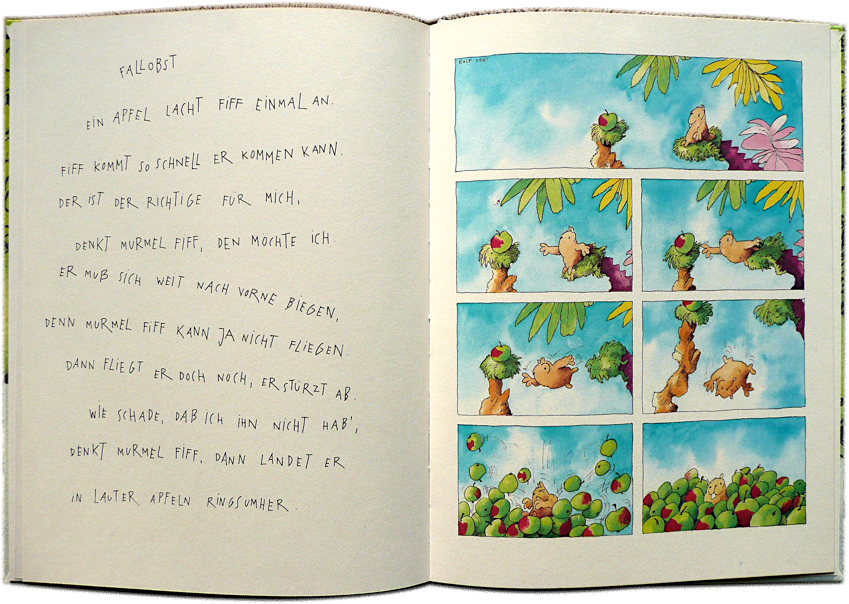 FALLOBST
EIN APFEL LACHT FIFF EINMAL AN.
FIFF KOMMT SO SCHNELL ER KOMMEN KANN.
DER IST DER RICHTIGE FÜR MICH,
DENKT MURMEL FIFF, DEN MÖCHTE ICH.
ER MUß SICH WEIT NACH VORNE BIEGEN,
DENN MURMEL FIFF KANN JA NICHT FLIEGEN.
DANN FLIEGT ER DOCH NOCH, ER STÜRZT AB.
WIE SCHADE, DAß ICH IHN NICHT HAB',
DENKT MURMEL FIFF, DANN LANDET ER
IN LAUTER APFELN RINGSUMHER.
ROLF VOGT